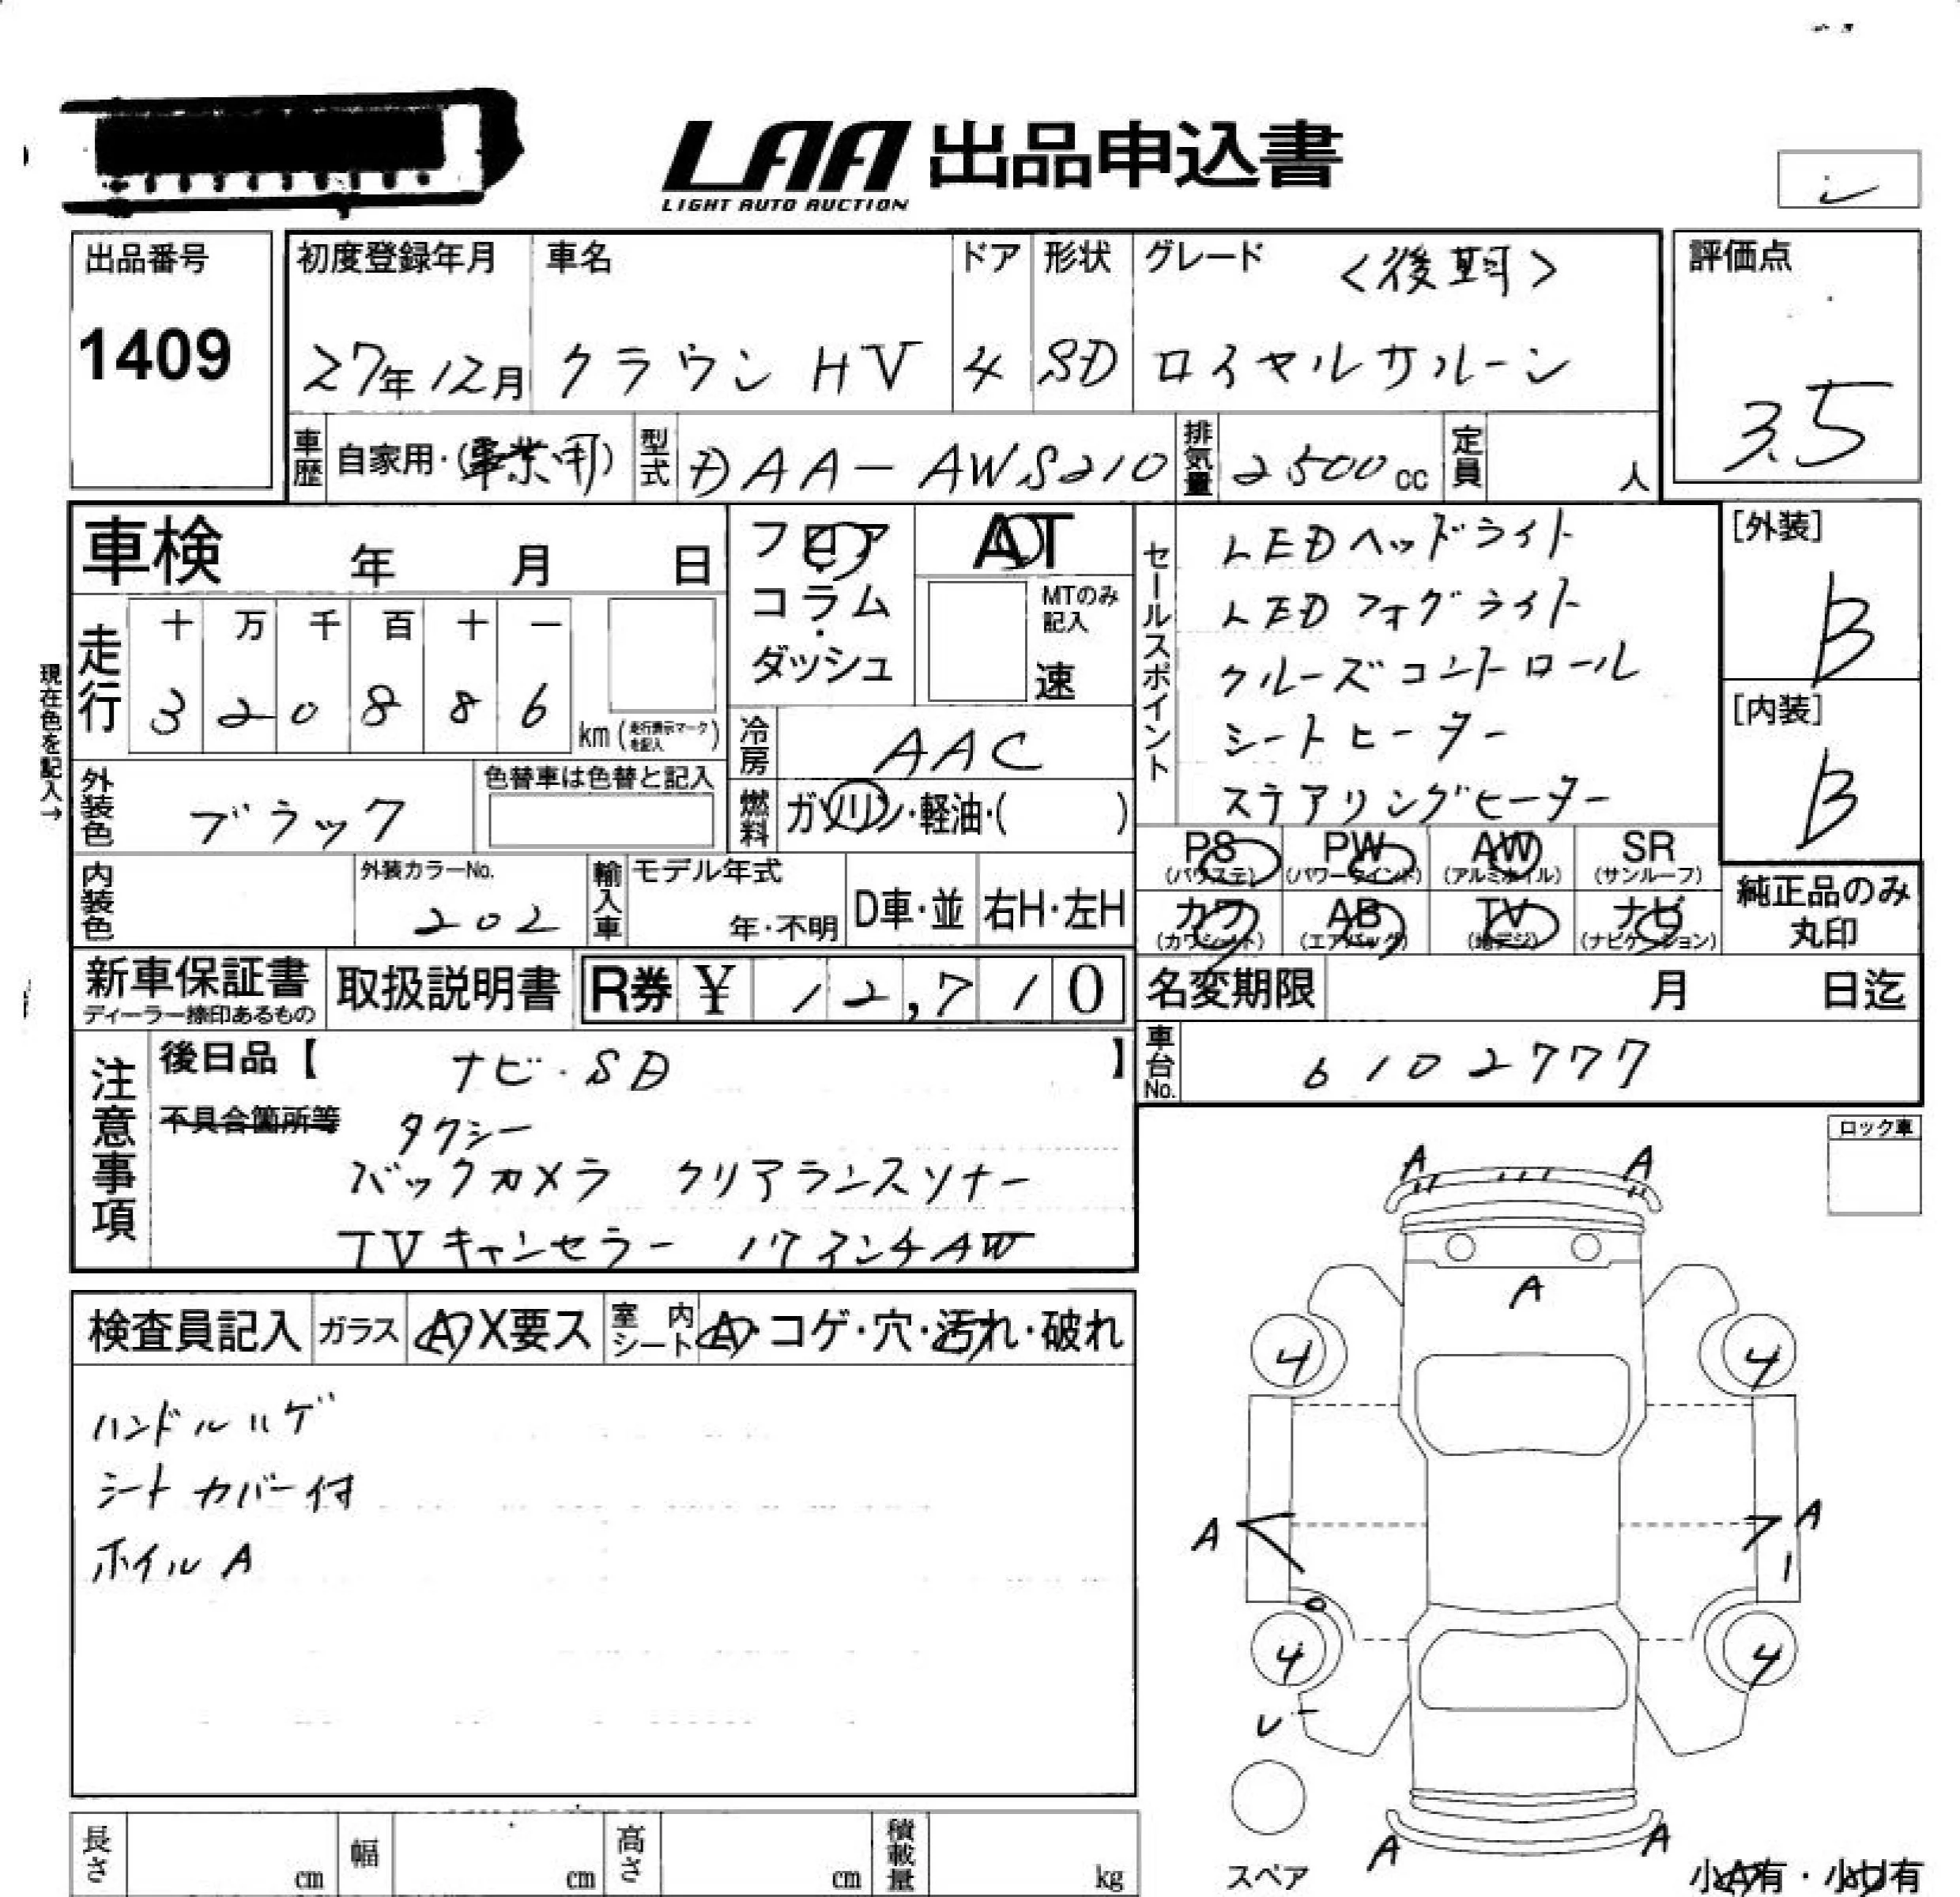 LAA 出品申込書
LIGHT AUTO AUCTION
出品番号
1409
初度登録年月
27年12月
車名
クラウン HV
ドア
4
形状
SD
グレード
<後期>
ロイヤルサルーン
評価点
3.5
車歴
自家用・(事業用)
型式
DAA-AWS210
排気量
2500cc
定員
人
車検 年 月 日
走行
十 万 千 百 十 一
3 2 0 8 8 6
km (走行表示マークを記入)
現在色を記入→
外装色
ブラック
色替車は色替と記入
内装色
外装カラーNo.
202
フロア
コラム
ダッシュ
AT
MTのみ
記入
速
冷房
AAC
燃料
ガソリン・軽油・( )
輸入車
モデル年式
年・不明
D車・並
右H・左H
セールスポイント
LEDヘッドライト
LEDフォグライト
クルーズコントロール
シートヒーター
ステアリングヒーター
[外装]
B
[内装]
B
PS
(パワステ)
PW
(パワーウインド)
AW
(アルミホイル)
SR
(サンルーフ)
カワ
(カワシート)
AB
(エアバッグ)
TV
(地デジ)
ナビ
(ナビゲーション)
純正品のみ
丸印
新車保証書
ディーラー捺印あるもの
取扱説明書
R券 ¥ 12,710
名変期限 月 日迄
車台No.
6102777
注意事項
後日品【 ナビ・SD 】
不具合箇所等
タクシー
バックカメラ クリアランスソナー
TVキャンセラー 17インチAW
検査員記入
ガラス
A・X要ス
室内シート
A・コゲ・穴・汚れ・破れ
ハンドルハゲ
シートカバー付
ホイルA
ロック車
A A
A
4 4
A A
4 4
レ
A A
スペア
小A有・小U有
長さ cm
幅 cm
高さ cm
積載量 kg